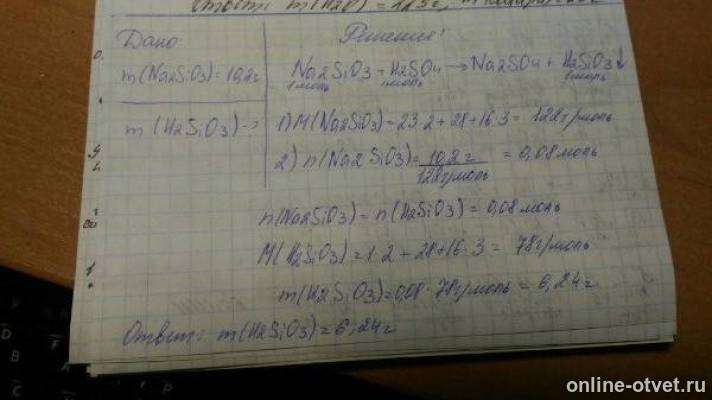 Ответ: m(H2O) = 22,5г,
Дано
Решение:
m(Na2SiO3) = 10,2г
Na2SiO3 + H2SO4 → Na2SO4 + H2SiO3↓
1моль 1моль 1моль
m(H2SiO3) - ?
1) M(Na2SiO3) = 23·2 + 28 + 16·3 = 122г/моль
2) n(Na2SiO3) = 10,2г / 122г/моль = 0,08 моль
n(Na2SiO3) = n(H2SiO3) = 0,08 моль
M(H2SiO3) = 1·2 + 28 + 16·3 = 78г/моль
m(H2SiO3) = 0,08 · 78г/моль = 6,24г
Ответ: m(H2SiO3) = 6,24г
online-otvet.ru